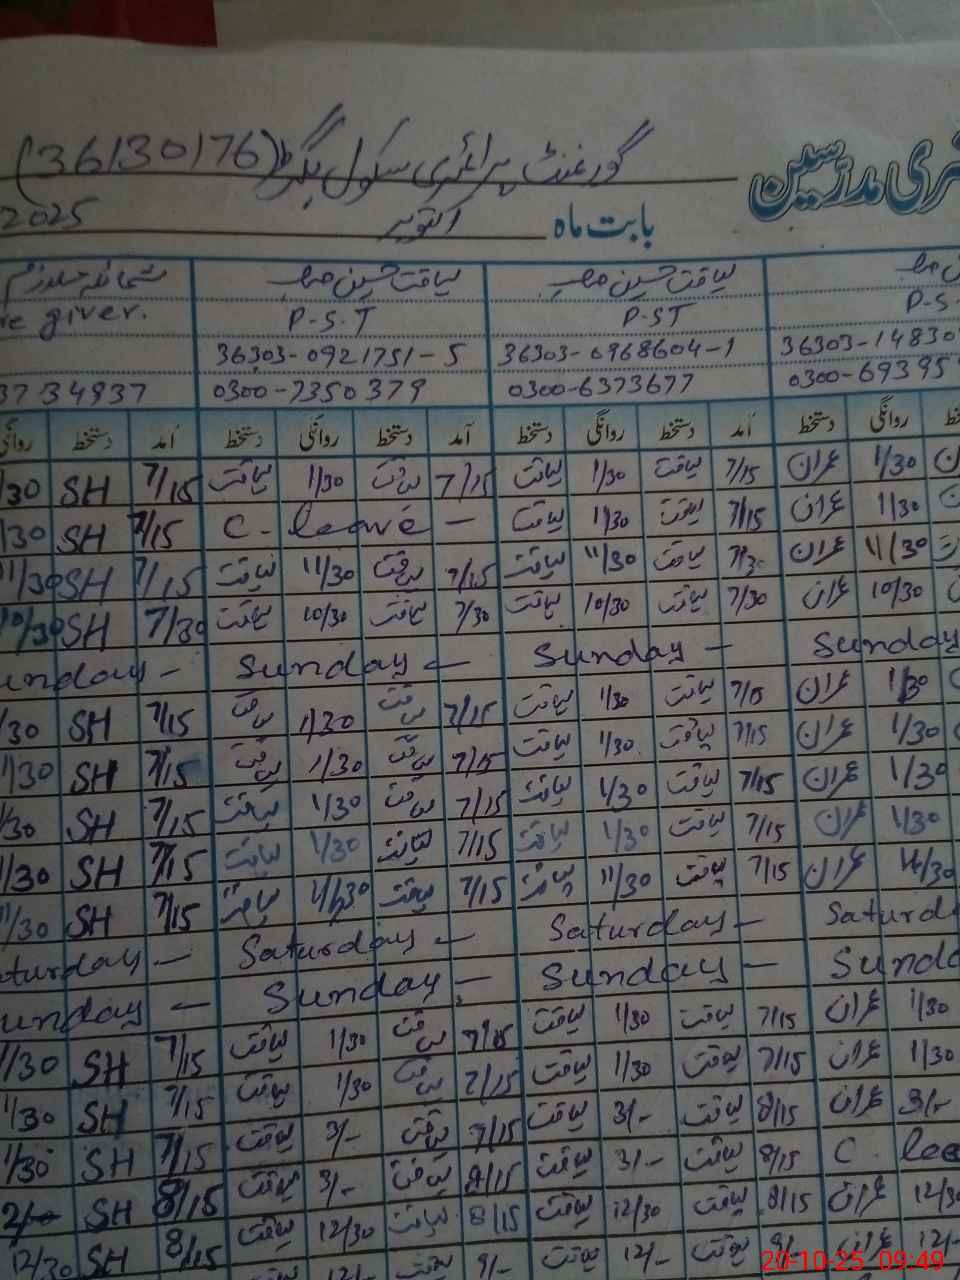 گورنمنٹ پرائمری سکول (36130176)
بابت ماہ اکتوبر 2025
لیاقت حسین لیاقت حسین
P-S P-ST P-S-T e giver.
36303-14830 36303-0968604-1 36303-0921751-5
0300-69395 0300-6373677 0300-7350379 3734937
روانگی دستخط آمد دستخط روانگی دستخط آمد دستخط روانگی دستخط
1/30 عمران 7/15 لیاقت 1/30 لیاقت 7/15 لیاقت 1/30 لیاقت 7/15 SH /30
1/30 عمران 7/15 لیاقت 1/30 لیاقت C. leave - 7/15 SH /30
11/30 عمران 7/30 لیاقت 11/30 لیاقت 7/15 لیاقت 11/30 لیاقت 7/15 SH 11/30
10/30 عمران 7/30 لیاقت 10/30 لیاقت 7/30 لیاقت 10/30 لیاقت 7/30 SH 10/30
Sunday Sunday - Sunday - unday -
1/30 عمران 7/15 لیاقت 1/30 لیاقت 7/15 لیاقت 1/30 لیاقت 7/15 SH /30
1/30 عمران 7/15 لیاقت 1/30 لیاقت 7/15 لیاقت 1/30 لیاقت 7/15 SH 1/30
1/30 عمران 7/15 لیاقت 1/30 لیاقت 7/15 لیاقت 1/30 لیاقت 7/15 SH 1/30
1/30 عمران 7/15 لیاقت 1/30 لیاقت 7/15 لیاقت 1/30 لیاقت 7/15 SH 1/30
عمران 7/15 لیاقت 11/30 لیاقت 7/15 لیاقت 11/30 لیاقت 7/15 SH 11/30
Saturd Saturday - Saturday - turday -
Sund Sunday - Sunday - unday -
1/30 عمران 7/15 لیاقت 1/30 لیاقت 7/15 لیاقت 1/30 لیاقت 7/15 SH 1/30
1/30 عمران 7/15 لیاقت 1/30 لیاقت 7/15 لیاقت 1/30 لیاقت 7/15 SH 1/30
3/- عمران 8/15 لیاقت 3/- لیاقت 7/15 لیاقت 3/- لیاقت 7/15 SH 1/30
C. lea 8/15 لیاقت 3/- لیاقت 8/15 لیاقت 3/- لیاقت 8/15 SH 2/-
12/30 عمران 8/15 لیاقت 12/30 لیاقت 8/15 لیاقت 12/30 لیاقت 8/15 SH 12/30
12/- عمران 9/- لیاقت 12/- لیاقت 9/- لیاقت 12/-
20-10-25 09:49